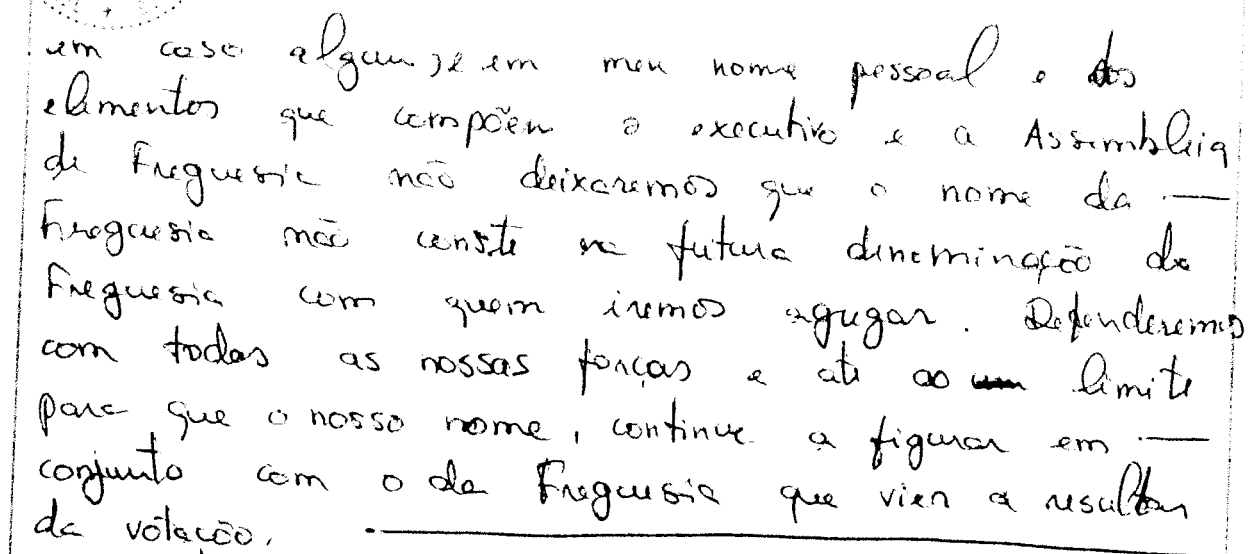 em caso algum, e em meu nome pessoal e dos
elementos que compõem o executivo e a Assembleia
de Freguesia não deixaremos que o nome da —
Freguesia não conste na futura dinominação da
Freguesia com quem iremos agregar. Defenderemos
com todas as nossas forças e até ao limite
para que o nosso nome, continue a figurar em —
conjunto com o da Freguesia que vier a resultar
da votação. —